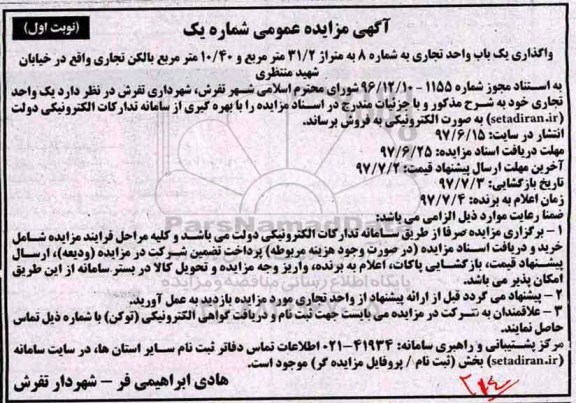 آگهی مزایده عمومی شماره یک
(نوبت اول)
واگذاری یک باب واحد تجاری به شماره ۸ به متراژ ۳۱/۲ متر مربع و ۱۰/۴۰ متر مربع بالکن تجاری واقع در خیابان
شهید منتظری
به استناد مجوز شماره ۱۱۵۵ - ۹۶/۱۲/۱۰ شورای محترم اسلامی شهر تفرش، شهرداری تفرش در نظر دارد یک واحد
تجاری خود به شرح مذکور و با جزئیات مندرج در اسناد مزایده را با بهره گیری از سامانه تدارکات الکترونیکی دولت
(setadiran.ir) به صورت الکترونیکی به فروش برساند.
انتشار در سایت: ۹۷/۶/۱۵
مهلت دریافت اسناد مزایده: ۹۷/۶/۲۵
آخرین مهلت ارسال پیشنهاد قیمت: ۹۷/۷/۲
تاریخ بازگشایی: ۹۷/۷/۳
زمان اعلام به برنده: ۹۷/۷/۴
ضمنا رعایت موارد ذیل الزامی می باشد:
۱ - برگزاری مزایده صرفا از طریق سامانه تدارکات الکترونیکی دولت می باشد و کلیه مراحل فرایند مزایده شامل
خرید و دریافت اسناد مزایده (در صورت وجود هزینه مربوطه) پرداخت تضمین شرکت در مزایده (ودیعه)، ارسال
پیشنهاد قیمت، بازگشایی پاکات، اعلام به برنده، واریز وجه مزایده و تحویل کالا در بستر سامانه از این طریق
امکان پذیر می باشد.
۲ - پیشنهاد می گردد قبل از ارائه پیشنهاد از واحد تجاری مورد مزایده بازدید به عمل آورید.
۳ - علاقمندان به شرکت در مزایده می بایست جهت ثبت نام و دریافت گواهی الکترونیکی (توکن) با شماره ذیل تماس
حاصل نمایند.
مرکز پشتیبانی و راهبری سامانه: ۴۱۹۳۴-۰۲۱ اطلاعات تماس دفاتر ثبت نام سایر استان ها، در سایت سامانه
(setadiran.ir) بخش (ثبت نام / پروفایل مزایده گر) موجود است.
هادی ابراهیمی فر - شهردار تفرش